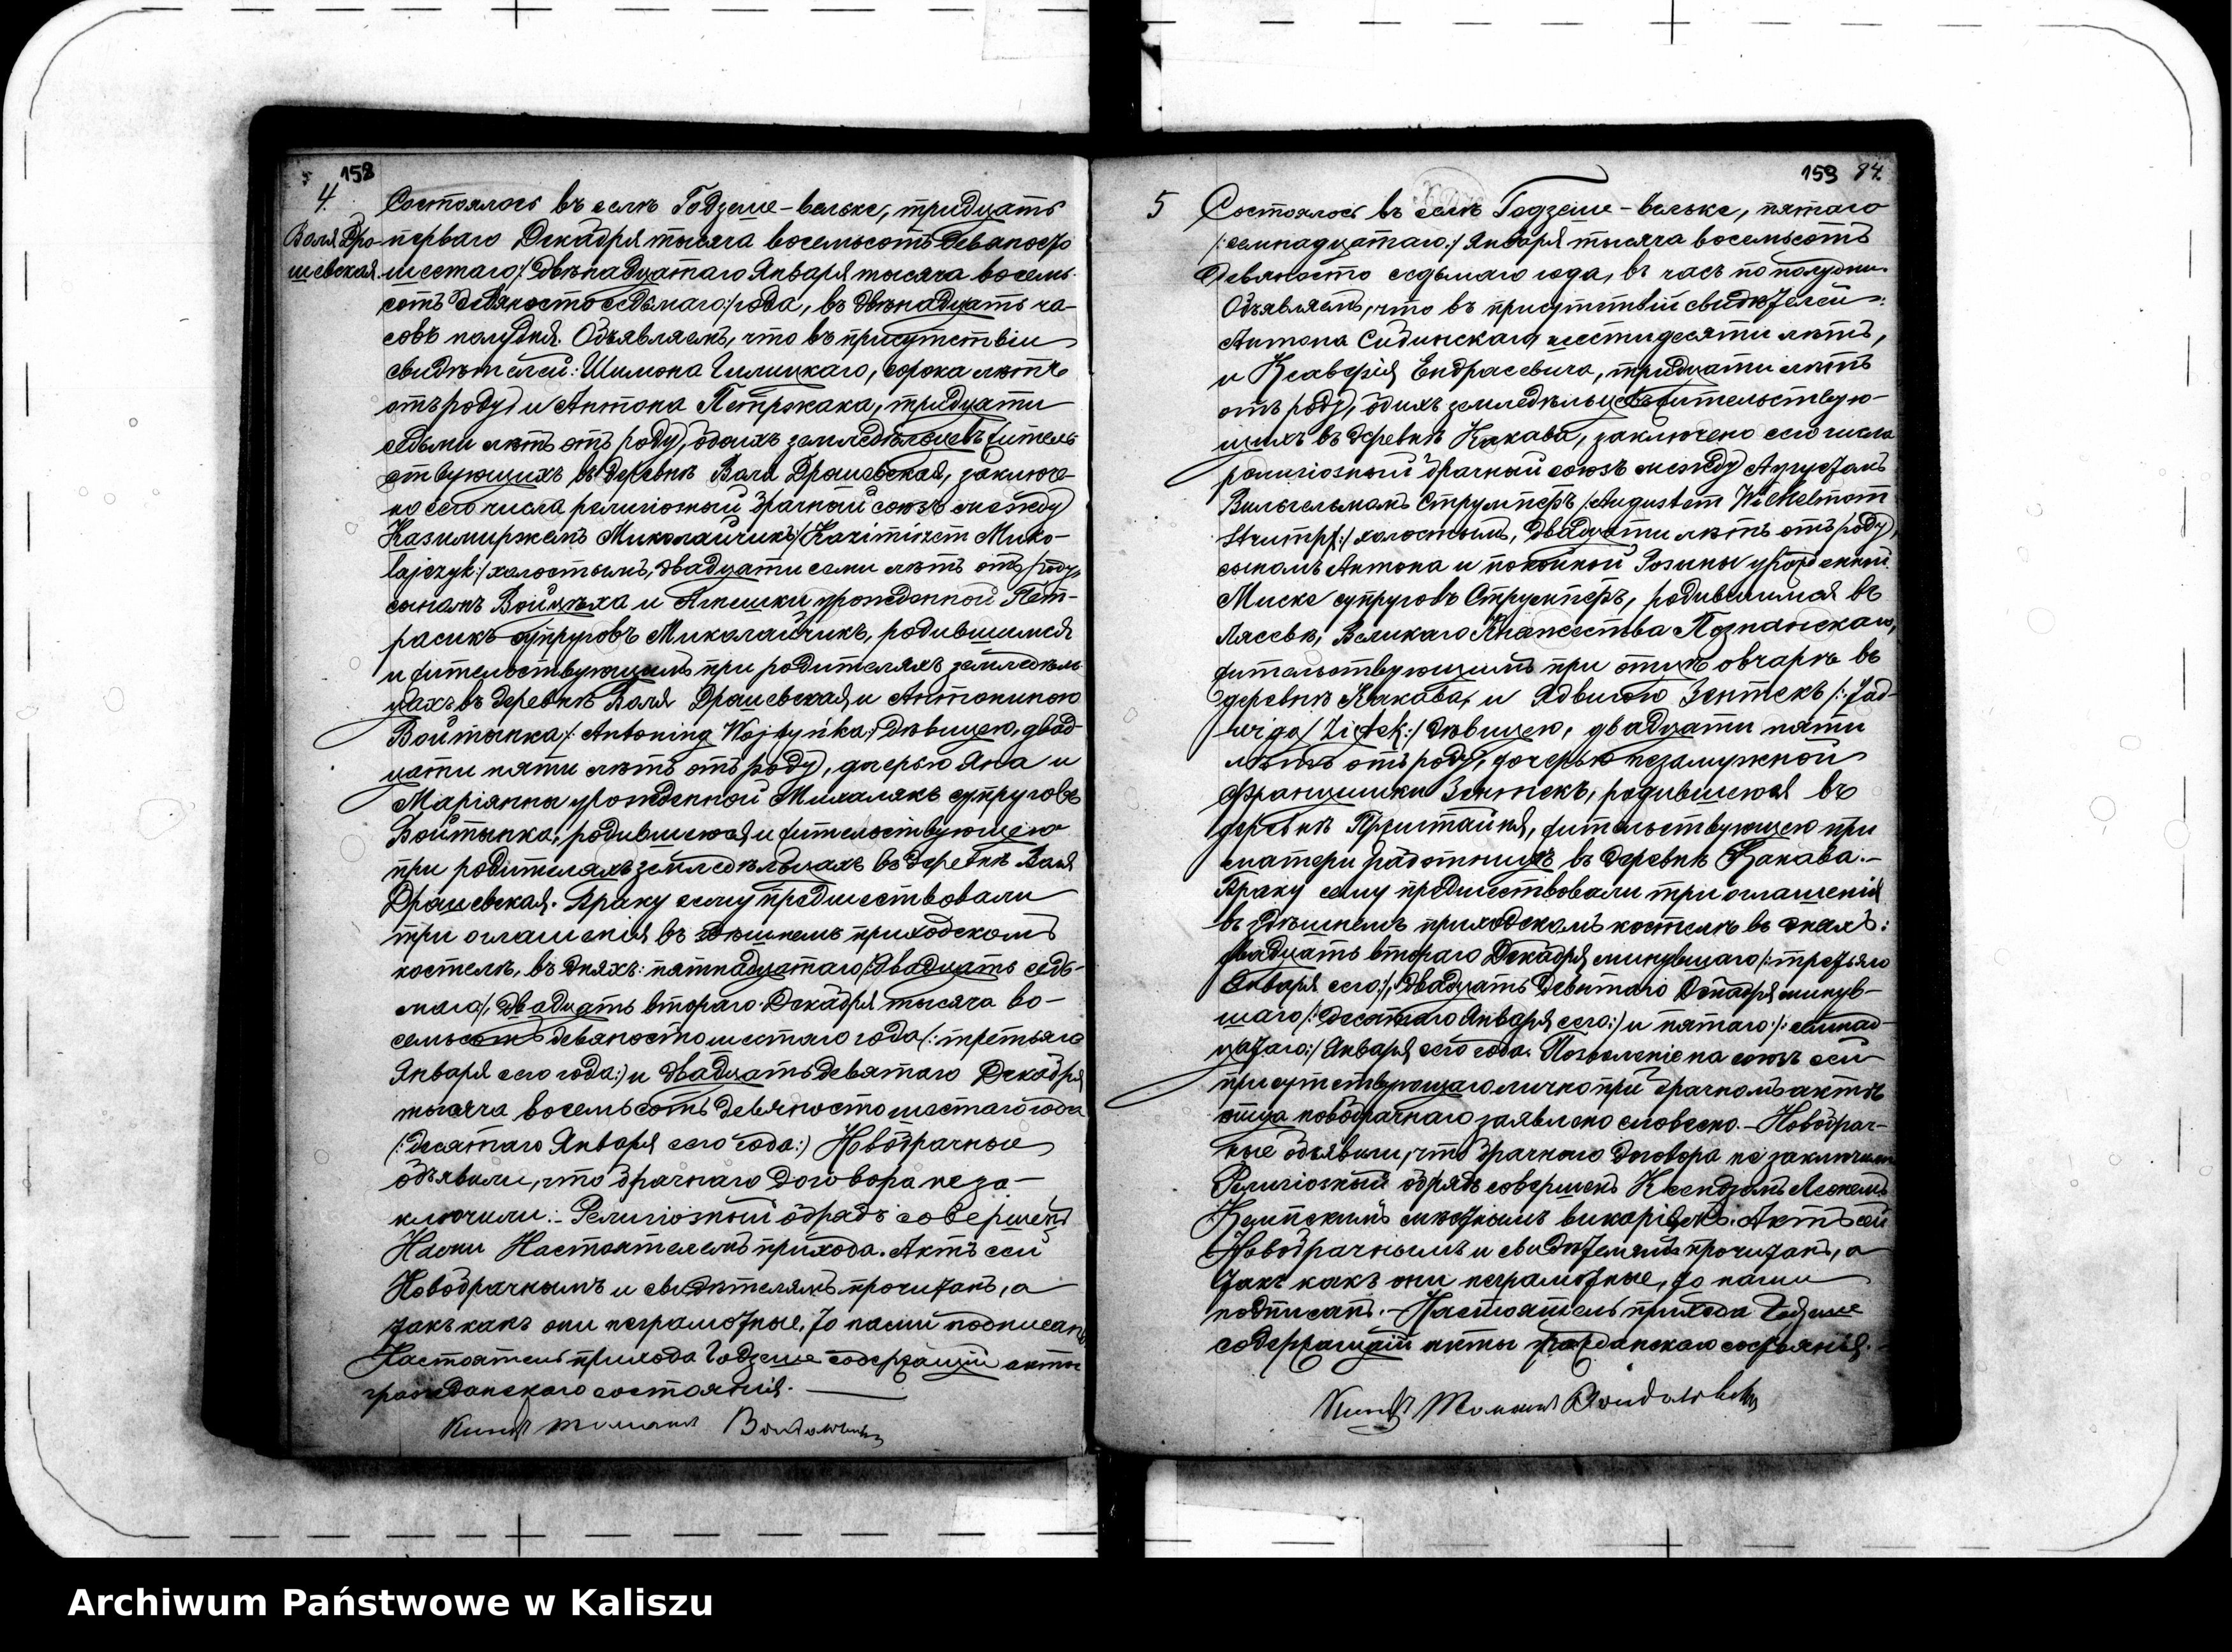 158
4.
Воля Дро-
шевская
Состоялось въ селѣ Годзеше-вельке, тридцать
перваго Декабря тысяча восемьсотъ девяносто
шестаго /: двѣнадцатаго Января тысяча восемь-
сотъ девяносто седьмаго:/ года, въ двѣнадцать ча-
совъ полудня. Объявляемъ, что въ присутствіи
свидѣтелей: Шимона Чилицкаго, сорока лѣтъ
отъ роду и Антона Петржака, тридцати
седьми лѣтъ отъ роду, обоихъ земледѣльцевъ житель-
ствующихъ въ деревнѣ Воля Дрошевская, заключе-
но сего числа религіозный брачный союзъ между
Казимиржемъ Миколайчикъ /: Kazimirzem Miko-
lajczyk:/ холостымъ, двадцати семи лѣтъ отъ роду,
сыномъ Войцѣха и Агнешки урожденной Пет-
расикъ супруговъ Миколайчикъ, родившимся
и жительствующимъ при родителяхъ земледѣль-
цахъ въ деревнѣ Воля Дрошевская, и Антониною
Войтынка /: Antoniną Wojtyńka:/ дѣвицею, двад-
цати пяти лѣтъ отъ роду, дочерью Яна и
Маріянны урожденной Михалякъ супруговъ
Войтынка, родившеюся и жительствующею
при родителяхъ земледѣльцахъ въ деревнѣ Воля
Дрошевская. Браку сему предшествовали
три оглашенія въ здѣшнемъ приходскомъ
костелѣ, въ дняхъ: пятнадцатаго /: двадцать седь-
маго:/, двадцать втораго Декабря тысяча во-
семьсотъ девяносто шестаго года /: третьяго
Января сего года:/ и двадцать девятаго Декабря
тысяча восемьсотъ девяносто шестаго года
/: десятаго Января сего года:/ Новобрачные
объявили, что брачнаго договора не за-
ключили. – Религіозный обрядъ совершенъ
Нами Настоятелемъ прихода. Актъ сей
Новобрачнымъ и свидѣтелямъ прочитанъ, а
такъ какъ они неграмотные, то нами подписанъ.
Настоятель прихода Годзеше содержащій акты
гражданскаго состоянія.
159 84
5
Состоялось въ селѣ Годзеше-вельке, пятаго
/: семнадцатаго:/ Января тысяча восемьсотъ
девяносто седьмаго года, въ часъ по полудни.
Объявляемъ, что въ присутствіи свидѣтелей:
Антона Сибинскаго шестидесяти лѣтъ,
и Ксаверія Ендрасевича, тридцати лѣтъ
отъ роду, обоихъ земледѣльцевъ жительствую-
щихъ въ деревнѣ Какава, заключено сего числа
религіозный брачный союзъ между Августомъ
Вильгельмомъ Струмпфъ /: Augustem Wilhelmom
Strumpf:/ холостымъ, двадцати лѣтъ отъ роду,
сыномъ Антона и покойной Розины урожденной
Миске супруговъ Струмпфъ, родившимся въ
Лясевѣ, Великаго Княжества Познанскаго,
жительствующимъ при отцѣ овчарѣ въ
деревнѣ Какава, и Ядвигою Зентекъ /: Jad-
wigą Ziętek:/ дѣвицею, двадцати пяти
лѣтъ отъ роду, дочерью незамужной
Францишки Зентекъ, родившеюся въ
деревнѣ Пржистайня, жительствующею при
матери работницѣ въ деревнѣ Какава.–
Браку сему предшествовали три оглашенія
въ здѣшнемъ приходскомъ костелѣ въ дняхъ:
двадцать втораго Декабря минувшаго /: третьяго
Января сего:/, двадцать девятаго Декабря минув-
шаго /: десятаго Января сего:/ и пятаго /: семнад-
цатаго:/ Января сего года. Позволеніе на союзъ сей
присутствующаго лично при брачномъ актѣ
отца новобрачнаго заявлено словесно. – Новобрач-
ные объявили, что брачнаго договора не заключили
Религіозный обрядъ совершенъ Ксендзомъ Леономъ
Кемпскимъ мѣстнымъ викаріемъ. Актъ сей
Новобрачнымъ и свидѣтелямъ прочитанъ, а
такъ какъ они неграмотные, то нами
подписанъ. – Настоятель прихода Годзеше
содержащій акты гражданскаго состоянія.
Archiwum Państwowe w Kaliszu